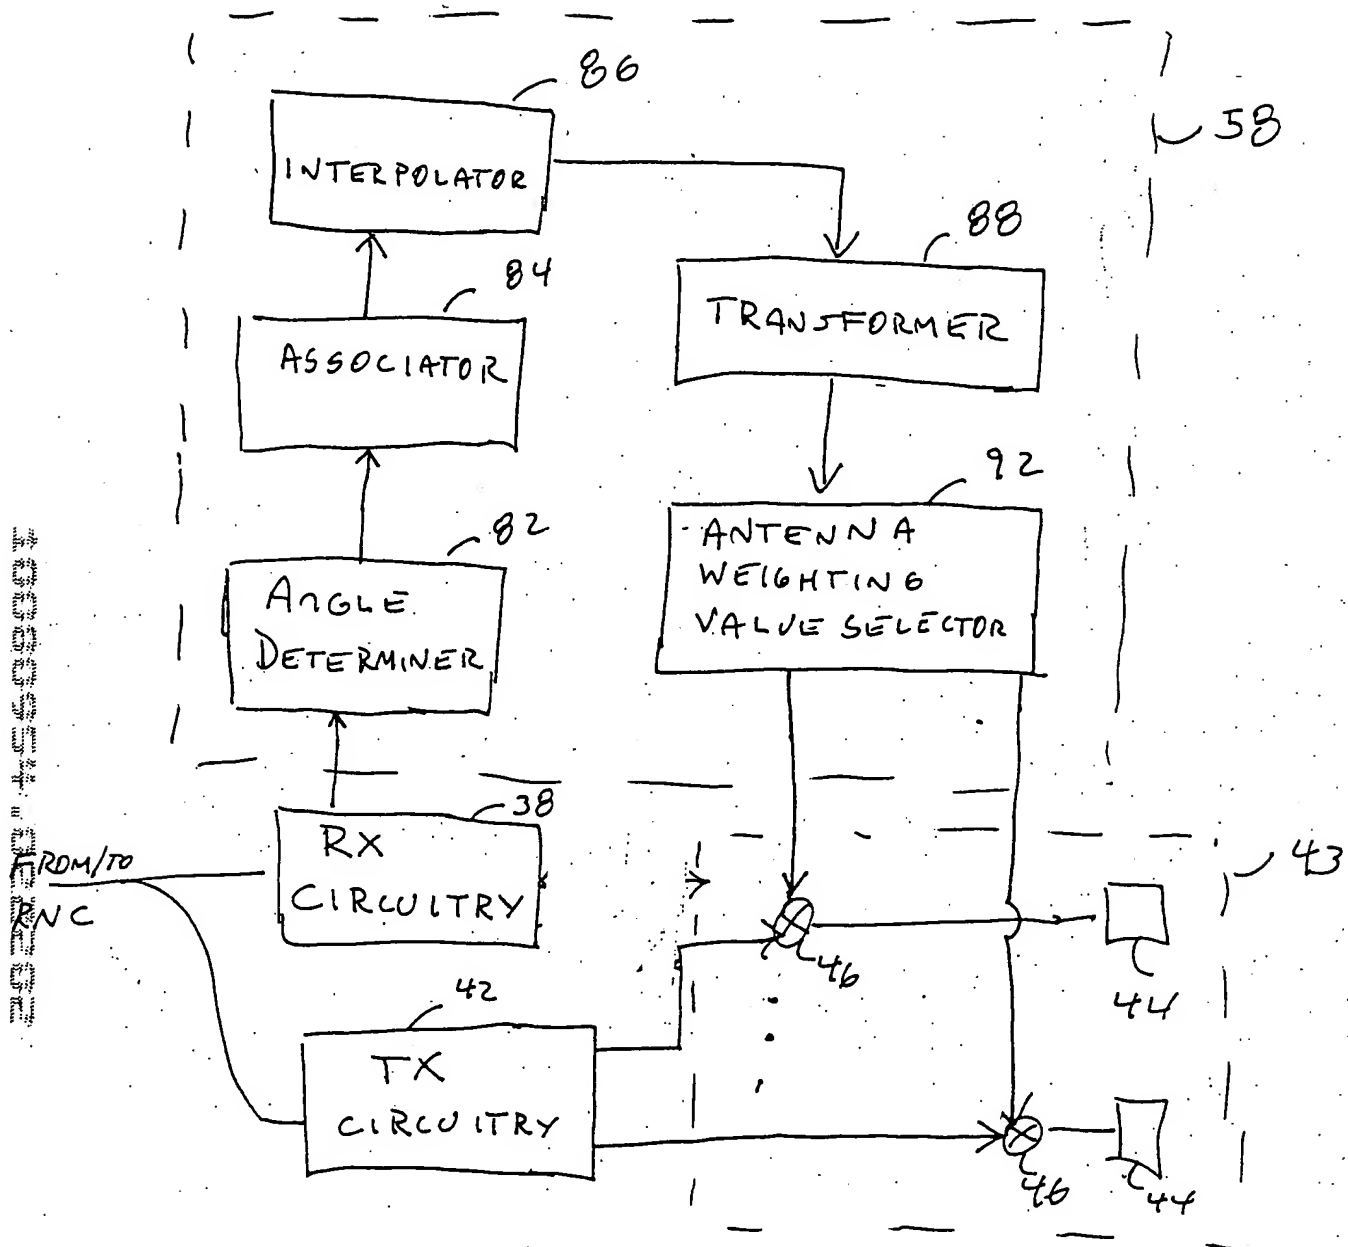 86
58
INTERPOLATOR
88
84
TRANSFORMER
ASSOCIATOR
92
82
ANTENNA
WEIGHTING
VALUE SELECTOR
ANGLE
DETERMINER
38
RX
CIRCUITRY
43
FROM/TO
RNC
46
44
42
TX
CIRCUITRY
46
44